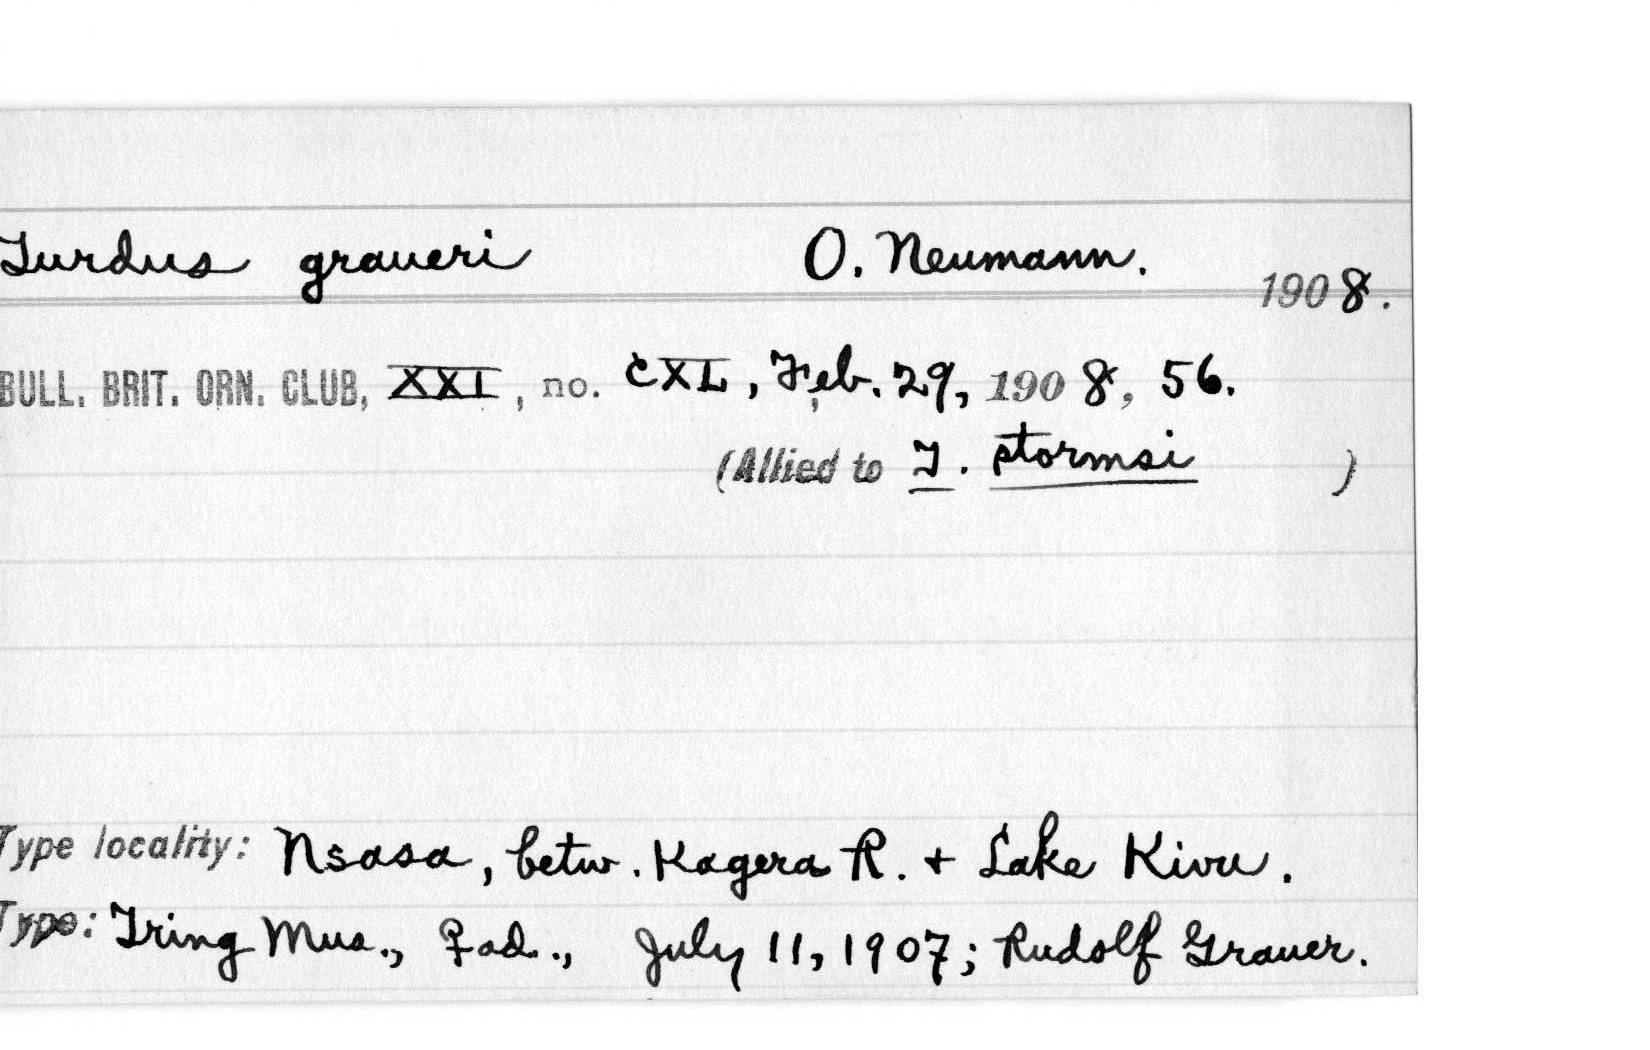 Turdus graueri O. Neumann.
1908.
BULL. BRIT. ORN. CLUB, XXI, no. CXL, Feb. 29, 1908, 56.
(Allied to T. stormsi )
Type locality: Nsasa, betw. Kagera R. + Lake Kivu.
Type: Tring Mus., ♀ ad., July 11, 1907; Rudolf Grauer.